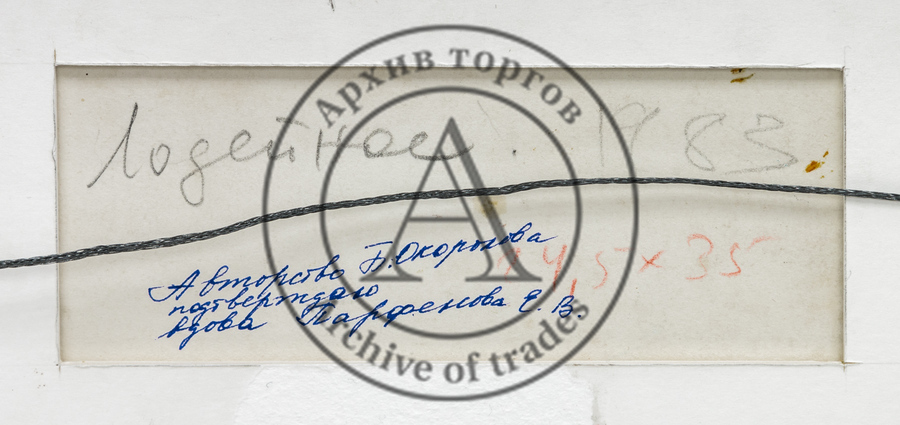 Архив торгов
Лодейное . 1983
24,5 x 35
Авторство Б. Окорокова
подтверждаю
вдова Парфенова Е. В.
Archive of trades